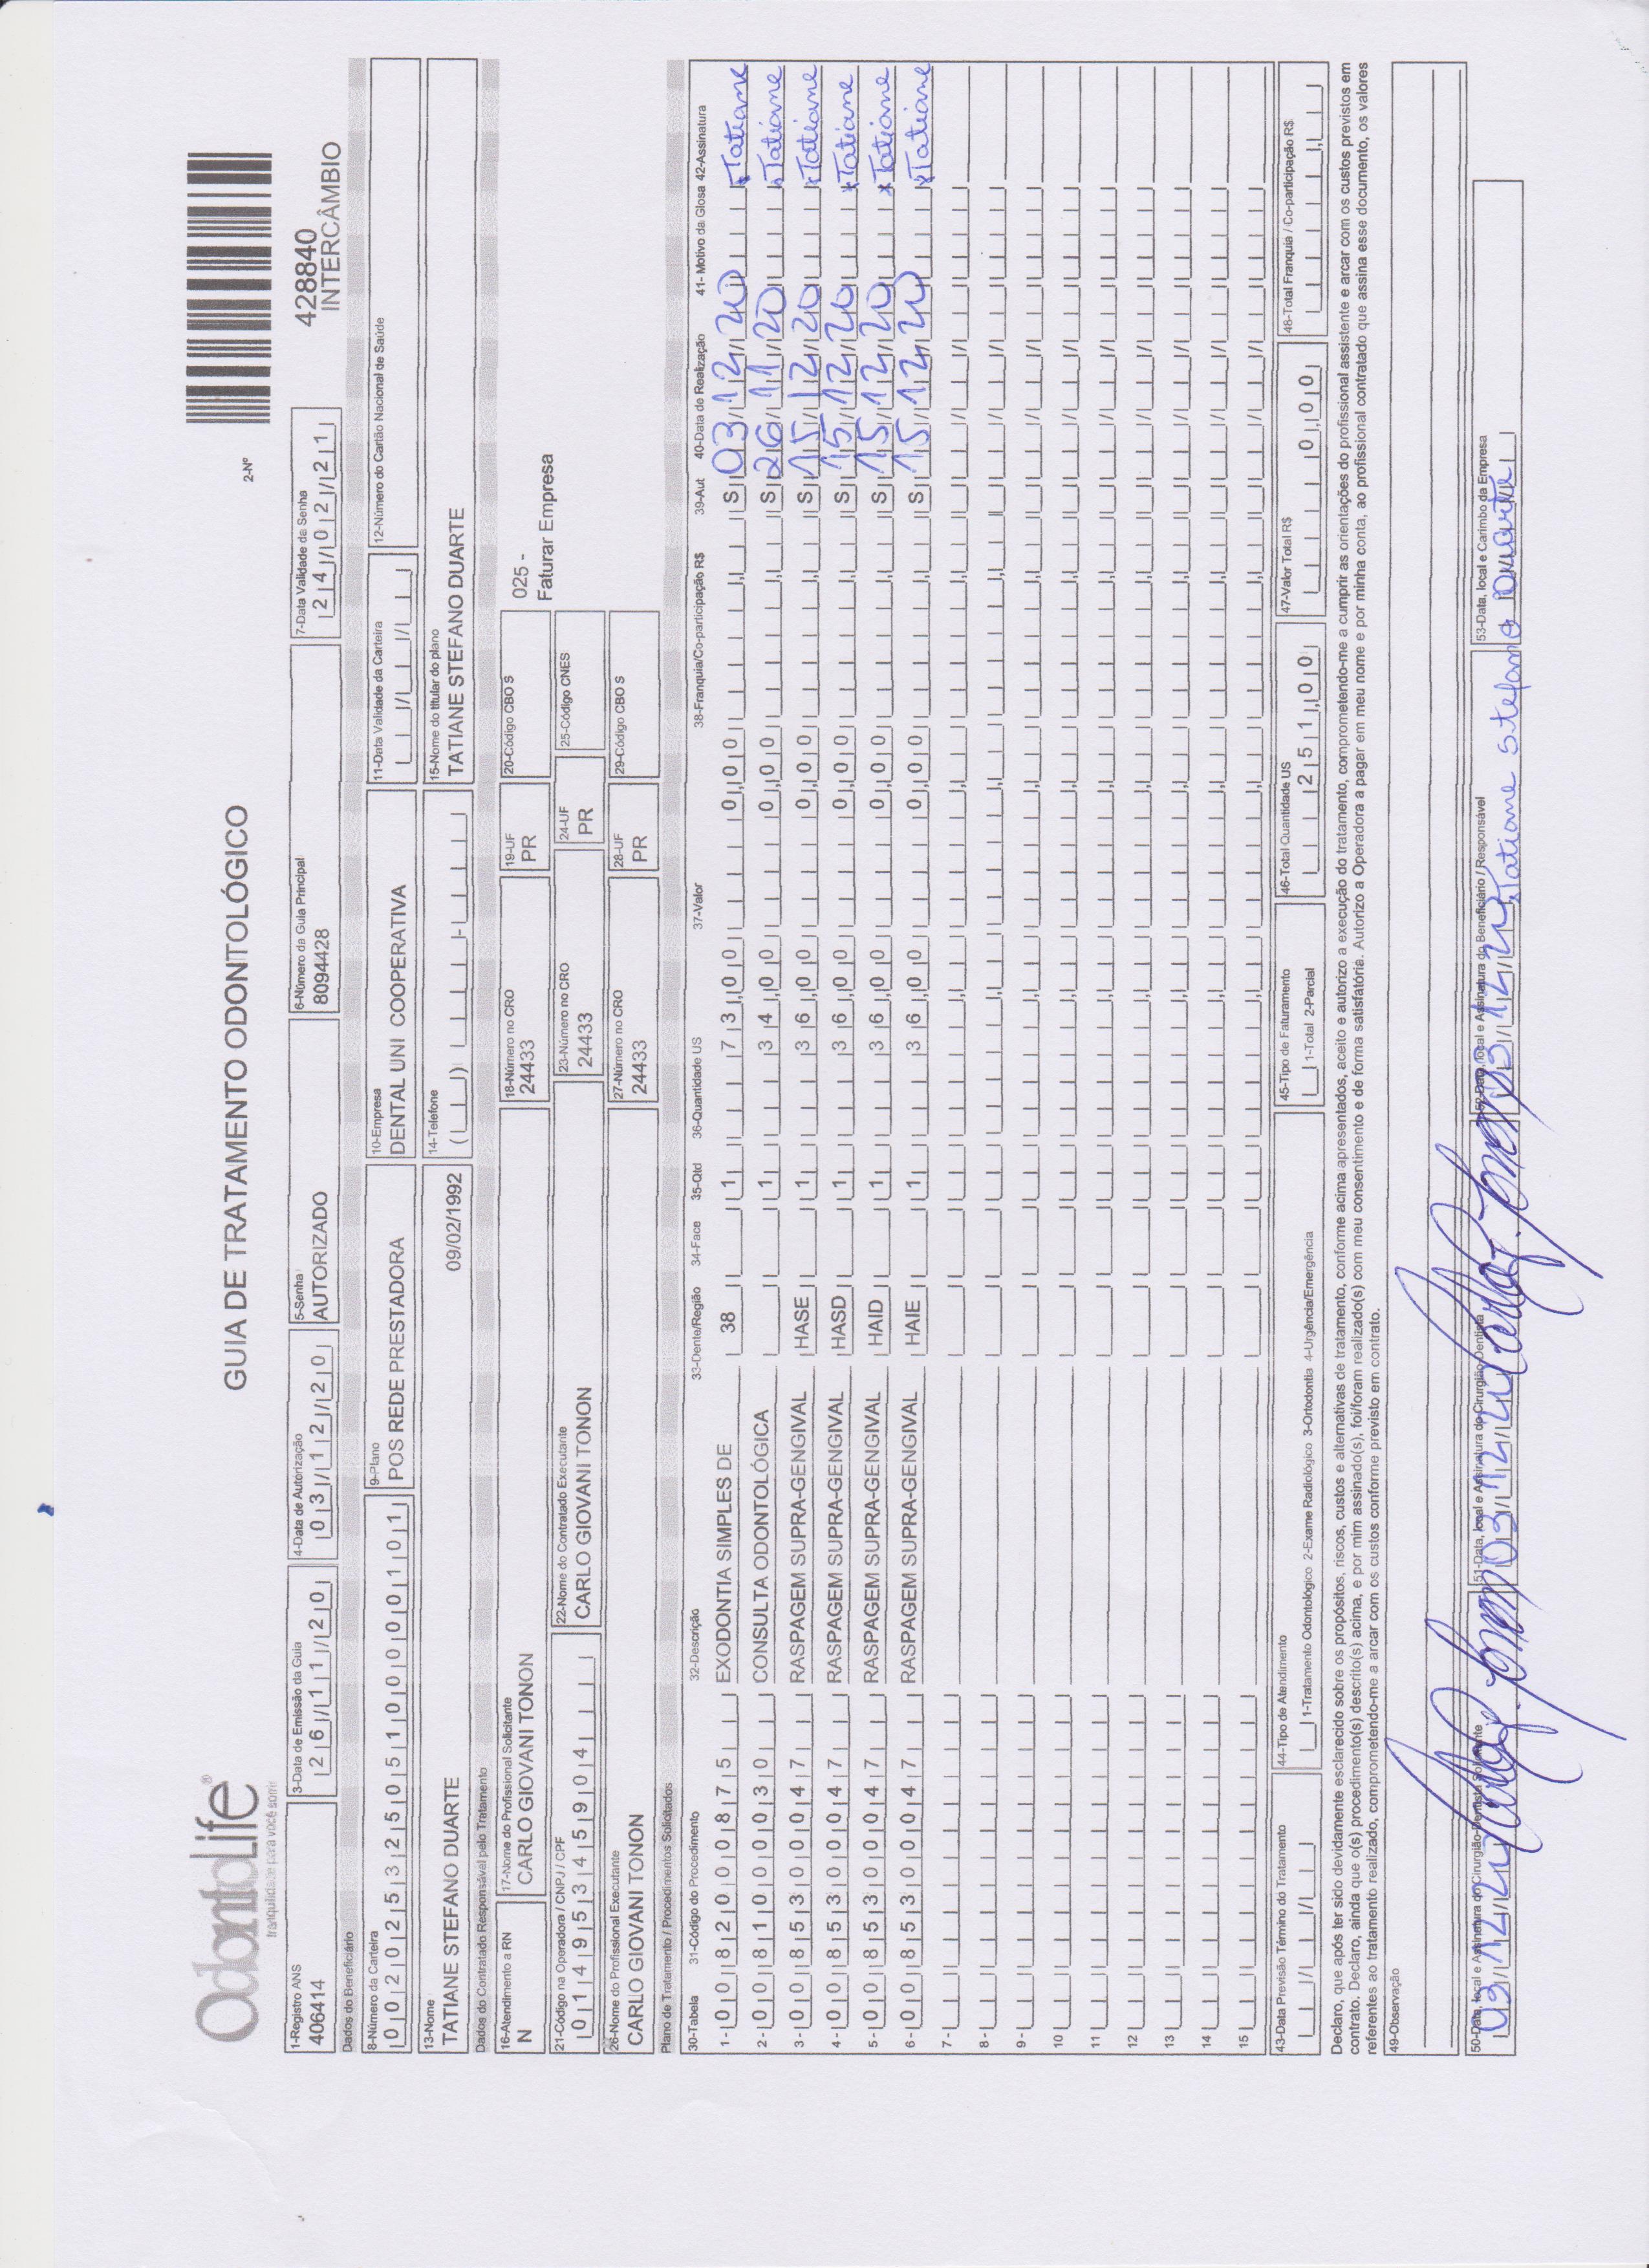 OdontoLife®
tranquilidade para você sorrir
GUIA DE TRATAMENTO ODONTOLÓGICO
2-Nº
428840
INTERCÂMBIO
1-Registro ANS
406414
3-Data de Emissão da Guia
26/11/20
4-Data de Autorização
03/12/20
5-Senha
AUTORIZADO
6-Número da Guia Principal
8094428
7-Data Validade da Senha
24/02/21
Dados do Beneficiário
8-Número da Carteira
00202532505100000101
9-Plano
POS REDE PRESTADORA
10-Empresa
DENTAL UNI COOPERATIVA
11-Data Validade da Carteira
12-Número do Cartão Nacional de Saúde
13-Nome
TATIANE STEFANO DUARTE
09/02/1992
14-Telefone
15-Nome do titular do plano
TATIANE STEFANO DUARTE
Dados do Contratado Responsável pelo Tratamento
16-Atendimento a RN
N
17-Nome do Profissional Solicitante
CARLO GIOVANI TONON
18-Número no CRO
24433
19-UF
PR
20-Código CBO S
025 -
Faturar Empresa
21-Código na Operadora / CNPJ / CPF
01495345904
22-Nome do Contratado Executante
CARLO GIOVANI TONON
23-Número no CRO
24433
24-UF
PR
25-Código CNES
26-Nome do Profissional Executante
CARLO GIOVANI TONON
27-Número no CRO
24433
28-UF
PR
29-Código CBO S
Plano de Tratamento / Procedimentos Solicitados
30-Tabela 31-Código do Procedimento 32-Descrição 33-Dente/Região 34-Face 35-Qtd 36-Quantidade US 37-Valor 38-Franquia/Co-participação R$ 39-Aut 40-Data de Realização 41- Motivo da Glosa 42-Assinatura
1- 00 82000875 EXODONTIA SIMPLES DE 38 1 73,00 0,00 S 03/12/20 Tatiane
2- 00 81000030 CONSULTA ODONTOLÓGICA 1 34,00 0,00 S 26/11/20 Tatiane
3- 00 85300047 RASPAGEM SUPRA-GENGIVAL HASE 1 36,00 0,00 S 15/12/20 xTatiane
4- 00 85300047 RASPAGEM SUPRA-GENGIVAL HASD 1 36,00 0,00 S 15/12/20 xTatiane
5- 00 85300047 RASPAGEM SUPRA-GENGIVAL HAID 1 36,00 0,00 S 15/12/20 xTatiane
6- 00 85300047 RASPAGEM SUPRA-GENGIVAL HAIE 1 36,00 0,00 S 15/12/20 xTatiane
7-
8-
9-
10
11
12
13
14
15
43-Data Previsão Término do Tratamento
44-Tipo de Atendimento
1-Tratamento Odontológico 2-Exame Radiológico 3-Ortodontia 4-Urgência/Emergência
45-Tipo de Faturamento
1-Total 2-Parcial
46-Total Quantidade US
251,00
47-Valor Total R$
0,00
48-Total Franquia / Co-participação R$
Declaro, que após ter sido devidamente esclarecido sobre os propósitos, riscos, custos e alternativas de tratamento, conforme acima apresentados, aceito e autorizo a execução do tratamento, comprometendo-me a cumprir as orientações do profissional assistente e arcar com os custos previstos em
contrato. Declaro, ainda que o(s) procedimento(s) descrito(s) acima, e por mim assinado(s), foi/foram realizado(s) com meu consentimento e de forma satisfatória. Autorizo a Operadora a pagar em meu nome e por minha conta, ao profissional contratado que assina esse documento, os valores
referentes ao tratamento realizado, comprometendo-me a arcar com os custos conforme previsto em contrato.
49-Observação
50-Data, local e Assinatura do Cirurgião-Dentista Solicitante
03/12/20
51-Data, local e Assinatura do Cirurgião-Dentista
03/12/20
52-Data, local e Assinatura do Beneficiário / Responsável
03/12/20 Tatiane Stefano Duarte
53-Data, local e Carimbo da Empresa